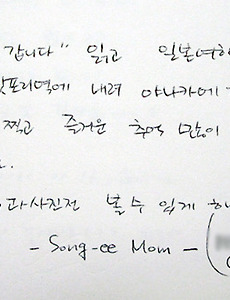 갑니다" 읽고 일본여행
닛포리역에 내려 야나카에
찍고 즐거운 추억 많이
요.
과 사진전 볼 수 있게 해
- Song-ee Mom -